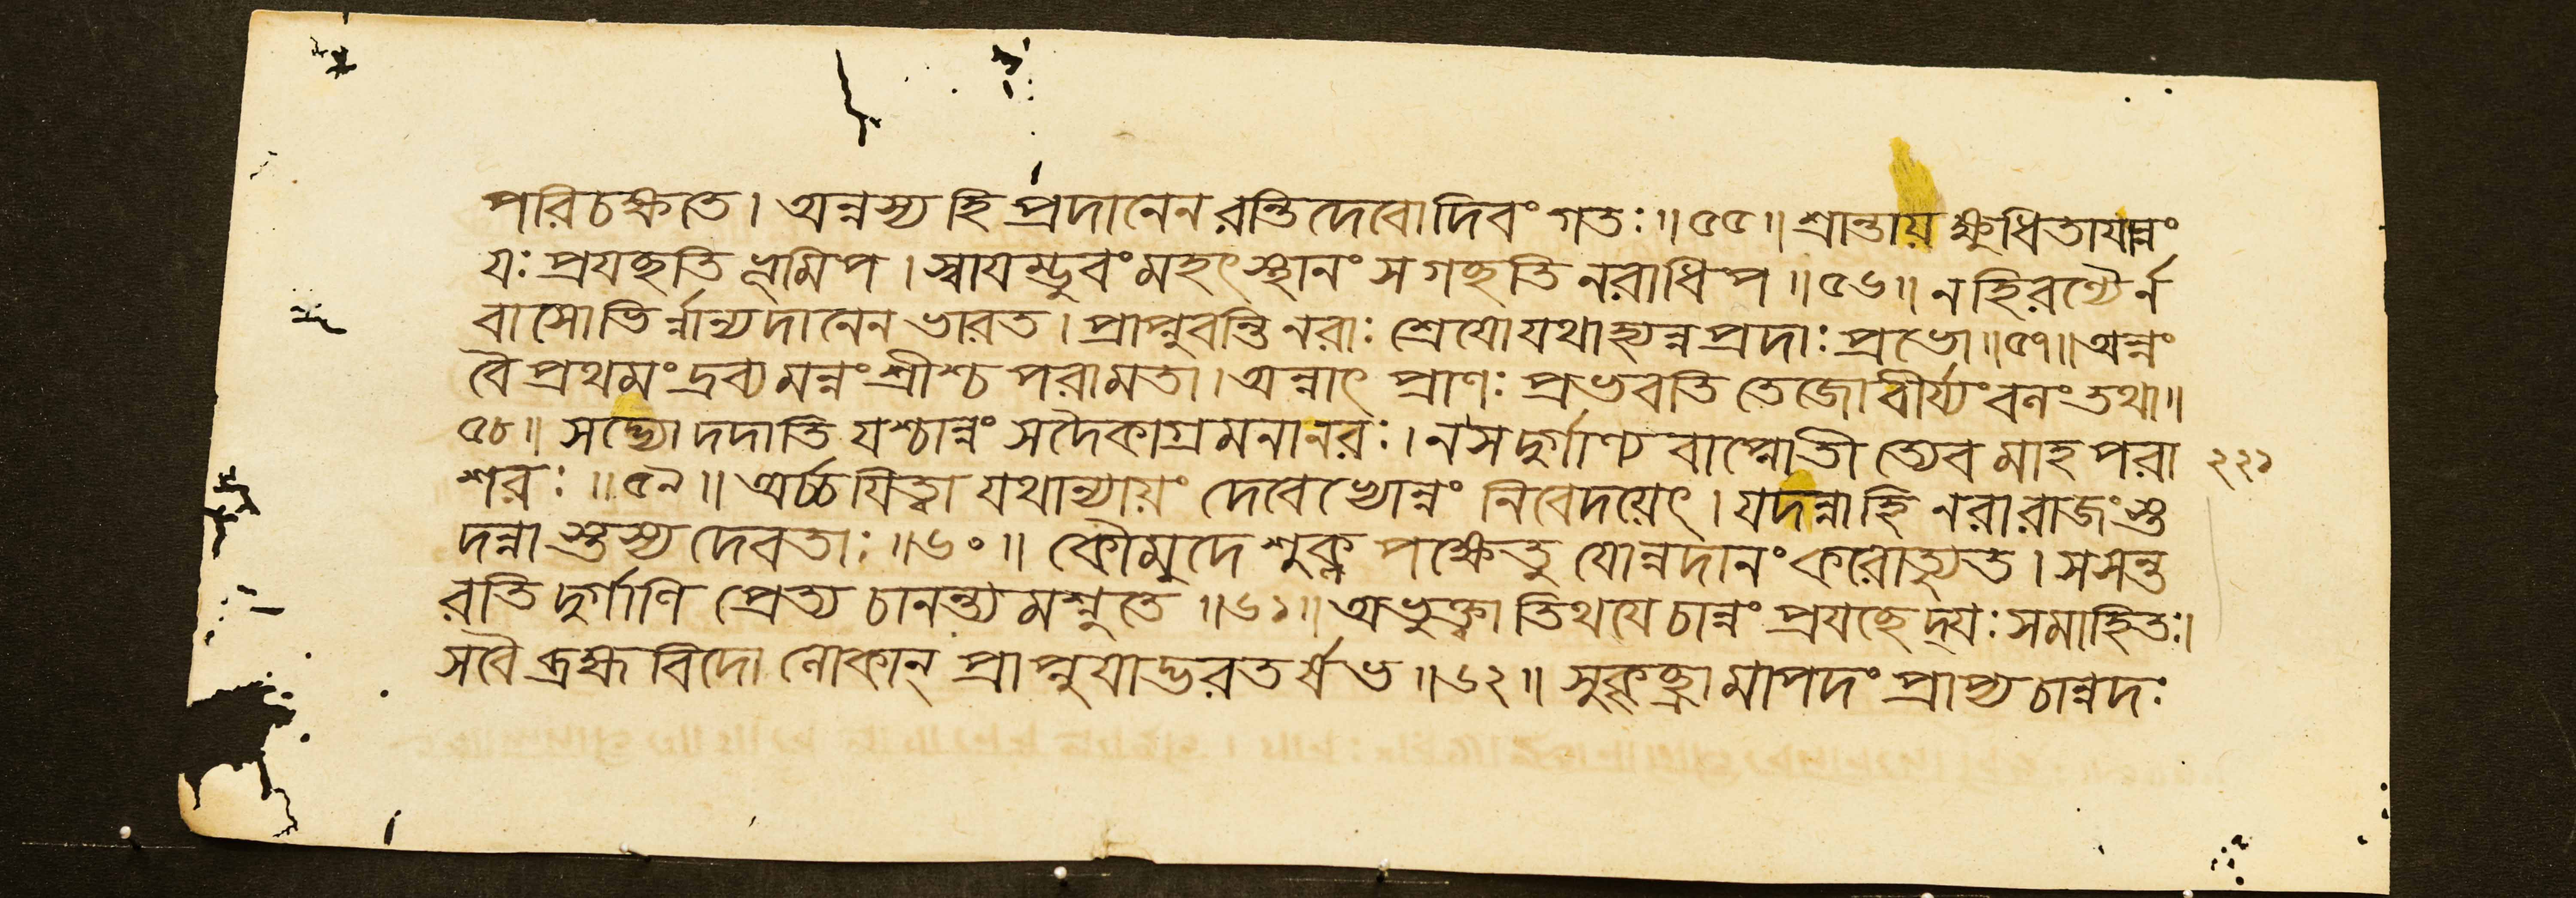 পরিচক্ষতে। অন্নস্য হি প্রদানেন রন্তিদেবো দিবং গতঃ॥৫৫॥ শ্রান্তায় ক্ষুধিতাযান্নং
যঃ প্রযচ্ছতি ভূমিপ। স্বাযম্ভুবং মহৎ স্থানং স গচ্ছতি নরাধিপ॥৫৬॥ ন হিরণ্যৈর্ন
বাসোভির্ন্নান্যদানেন ভারত। প্রাপ্নুবন্তি নরাঃ শ্রেযো যথাহ্যন্নপ্রদাঃ প্রভো॥৫৭॥ অন্নং
বৈ প্রথমং দ্রব্যমন্নং শ্রীশ্চ পরামতা। অন্নাৎ প্রাণঃ প্রভবতি তেজো বীর্য্যং বলং তথা॥
৫৮॥ সদ্ভ্যো দদাতি যশ্চান্নং সদৈকাগ্রমনা নরঃ। ন স দুর্গাণ্যবাপ্নোতীত্যেবমাহ পরা
২২১
শরঃ॥৫৯॥ অর্চ্চযিত্বা যথান্যায়ং দেবেভ্যোন্নং নিবেদয়েৎ। যদন্নাহি নরা রাজংস্ত
দন্নাস্তস্য দেবতাঃ॥৬০॥ কৌমুদে শুক্লপক্ষে তু যোন্নদানং করোত্যুত। স সন্ত
রতি দুর্গাণি প্রেত্য চানন্ত্যমশ্নুতে॥৬১॥ অভুক্ত্বাতিথযে চান্নং প্রযচ্ছেদ্যঃ সমাহিতঃ।
স বৈ ব্রহ্মবিদো লোকান্ প্রাপ্নুযাদ্ভরতর্ষভ॥৬২॥ সুকৃচ্ছ্রামাপদং প্রাপ্য চান্নদঃ